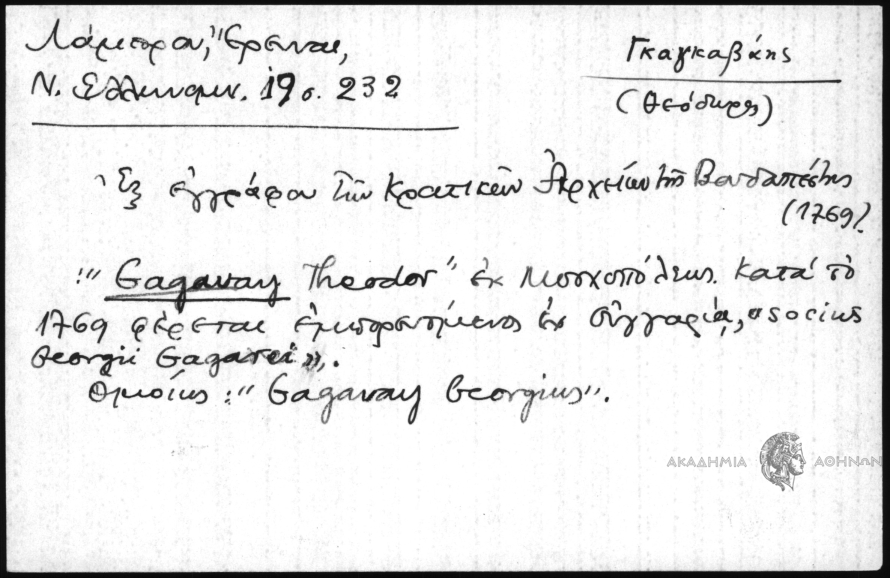 Λάμπρου, Ἔρευναι,
Ν. Ἑλληνομν. 19 σ. 232
Γκαγκαβάης
(Θεόδωρος)
Ἐξ ἐγγράφου τῶν Κρατικῶν Ἀρχείων τῆς Βουδαπέστης
(1769).
"Gagavay Theodor" ἐκ Μοσχοπόλεως. Κατά τό
1769 φέρεται ἐμπορευόμενος ἐν Οὑγγαρίᾳ, "socius
Georgii Gagavei".
Ὁμοίως: "Gagavay Georgius".
ΑΚΑΔΗΜΙΑ ΑΘΗΝΩΝ